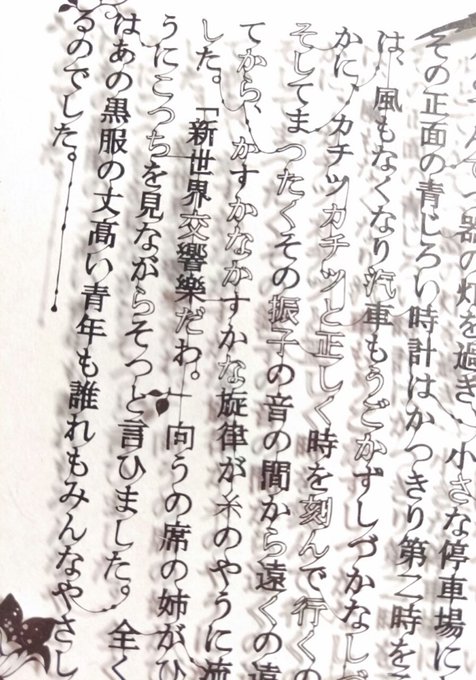 器の灯を過ぎ、小さな停車場に
その正面の青じろい時計はかつきり第二時を
は、風もなくなり汽車もうごかずしづかなしづ
かに、カチツカチツと正しく時を刻んで行くの
そしてまつたくその振子の音の間から遠くの遠
てから、かすかなかすかな旋律が糸のやうに流
した。「新世界交響樂だわ。」向うの席の姉がひ
うにこつちを見ながらそつと言ひました。全く
はあの黒服の丈髙い青年も誰れもみんなやさし
るのでした。